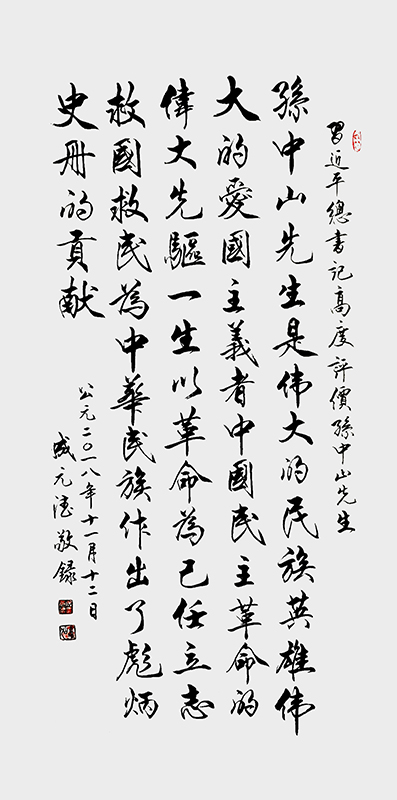 習近平總書記高度評價孫中山先生
孫中山先生是偉大的民族英雄偉
大的愛國主義者中國民主革命的
偉大先驅一生以革命為己任立志
救國救民為中華民族作出了彪炳
史冊的貢献
公元二〇一八年十一月十二日
戚元德敬録